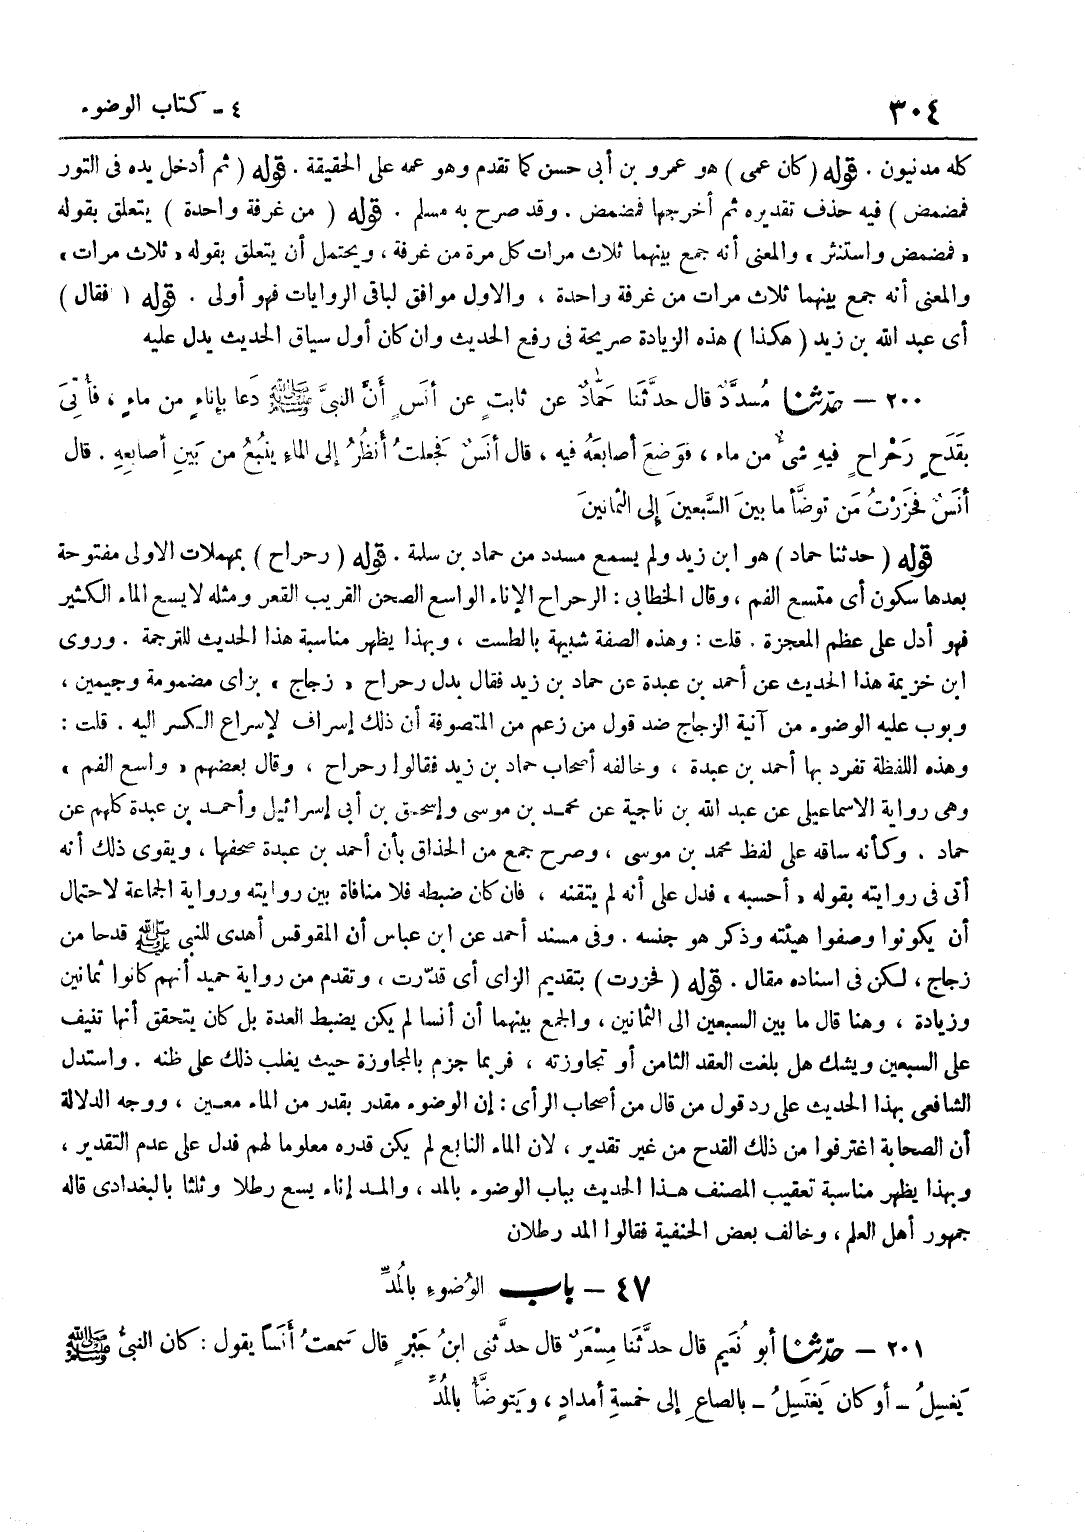 ٣٠٤
٤ - كتاب الوضوء
كله مدنيون . قوله ( كان عمى ) هو عمرو بن أبى حسن كما تقدم وهو عمه على الحقيقة . قوله ( ثم أدخل يده فى التور
فمضمض ) فيه حذف تقديره ثم أخرجها فمضمض . وقد صرح به مسلم . قوله ( من غرفة واحدة ) يتعلق بقوله
« فمضمض واستنثر » والمعنى أنه جمع بينهما ثلاث مرات كل مرة من غرفة ، ويحتمل أن يتعلق بقوله « ثلاث مرات »
والمعنى أنه جمع بينهما ثلاث مرات من غرفة واحدة ، والاول موافق لباقى الروايات فهو أولى . قوله ( فقال )
أى عبد الله بن زيد ( هكذا ) هذه الزيادة صريحة فى رفع الحديث وان كان أول سياق الحديث يدل عليه
٢٠٠ - حدثنا مُسدَّدٌ قال حدثَّنَا حَمَّادٌ عن ثابتٍ عن أنَسٍ أنَّ النبىَّ ﷺ دَعا بإناءٍ من ماءٍ ، فأُتِىَ
بقَدَحٍ رَحْراحٍ فيهِ شىءٌ من ماء ، فوَضعَ أصابعَهُ فيه ، قال أنَسٌ فجَعلتُ أنظُرُ إلى الماءِ ينبُعُ من بَينِ أصابعِهِ . قال
أنَسٌ فحَزَرْتُ مَن توضَّأ ما بينَ السَّبعينَ إلى الثمانينَ
قوله ( حدثنا حماد ) هو ابن زيد ولم يسمع مسدد من حماد بن سلمة . قوله ( رحراح ) بمهملات الاولى مفتوحة
بعدها سكون أى متسع الفم ، وقال الخطابى : الرحراح الإناء الواسع الصحن القريب القعر ومثله لا يسع الماء الكثير
فهو أدل على عظم المعجزة . قلت : وهذه الصفة شبيهة بالطست ، وبهذا يظهر مناسبة هذا الحديث للترجمة . وروى
ابن خزيمة هذا الحديث عن أحمد بن عبدة عن حماد بن زيد فقال بدل رحراح « زجاج » بزاى مضمومة وجيمين ،
وبوب عليه الوضوء من آنية الزجاج ضد قول من زعم من المتصوفة أن ذلك إسراف لإسراع الكسر اليه . قلت :
وهذه اللفظة تفرد بها أحمد بن عبدة ، وخالفه أصحاب حماد بن زيد فقالوا رحراح ، وقال بعضهم « واسع الفم »
وهى رواية الاسماعيلى عن عبد الله بن ناجية عن محمد بن موسى وإسحق بن أبى إسرائيل وأحمد بن عبدة كلهم عن
حماد . وكأنه ساقه على لفظ محمد بن موسى ، وصرح جمع من الحذاق بأن أحمد بن عبدة صحفها ، ويقوى ذلك أنه
أتى فى روايته بقوله « أحسبه » فدل على أنه لم يتقنه ، فان كان ضبطه فلا منافاة بين روايته ورواية الجماعة لاحتمال
أن يكونوا وصفوا هيئته وذكر هو جنسه . وفى مسند أحمد عن ابن عباس أن المقوقس أهدى للنبى ﷺ قدحا من
زجاج ، لكن فى اسناده مقال . قوله ( فحزرت ) بتقديم الزاى أى قدّرت ، وتقدم من رواية حميد أنهم كانوا ثمانين
وزيادة ، وهنا قال ما بين السبعين الى الثمانين ، والجمع بينهما أن أنسا لم يكن يضبط العدة بل كان يتحقق أنها تنيف
على السبعين ويشك هل بلغت العقد الثامن أو تجاوزته ، فربما جزم بالمجاوزة حيث يغلب ذلك على ظنه . واستدل
الشافعى بهذا الحديث على رد قول من قال من أصحاب الرأى : إن الوضوء مقدر بقدر من الماء معين ، ووجه الدلالة
أن الصحابة اغترفوا من ذلك القدح من غير تقدير ، لان الماء النابع لم يكن قدره معلوما لهم فدل على عدم التقدير ،
وبهذا يظهر مناسبة تعقيب المصنف هذا الحديث بباب الوضوء بالمد ، والمد إناء يسع رطلا وثلثا بالبغدادى قاله
جمهور أهل العلم ، وخالف بعض الحنفية فقالوا المد رطلان
٤٧ - باب الوُضوءِ بالمُدِّ
٢٠١ - حدثنا أبو نُعَيمٍ قال حدثَّنَا مِسْعَرٌ قال حدثَّنى ابنُ جَبْرٍ قال سَمعتُ أنَسَاً يقول : كان النبىُّ ﷺ
يَغسِلُ - أو كان يَغتَسِلُ - بالصاعِ إلى خمسةِ أمدادٍ ، ويَتوضَّأُ بالمُدِّ